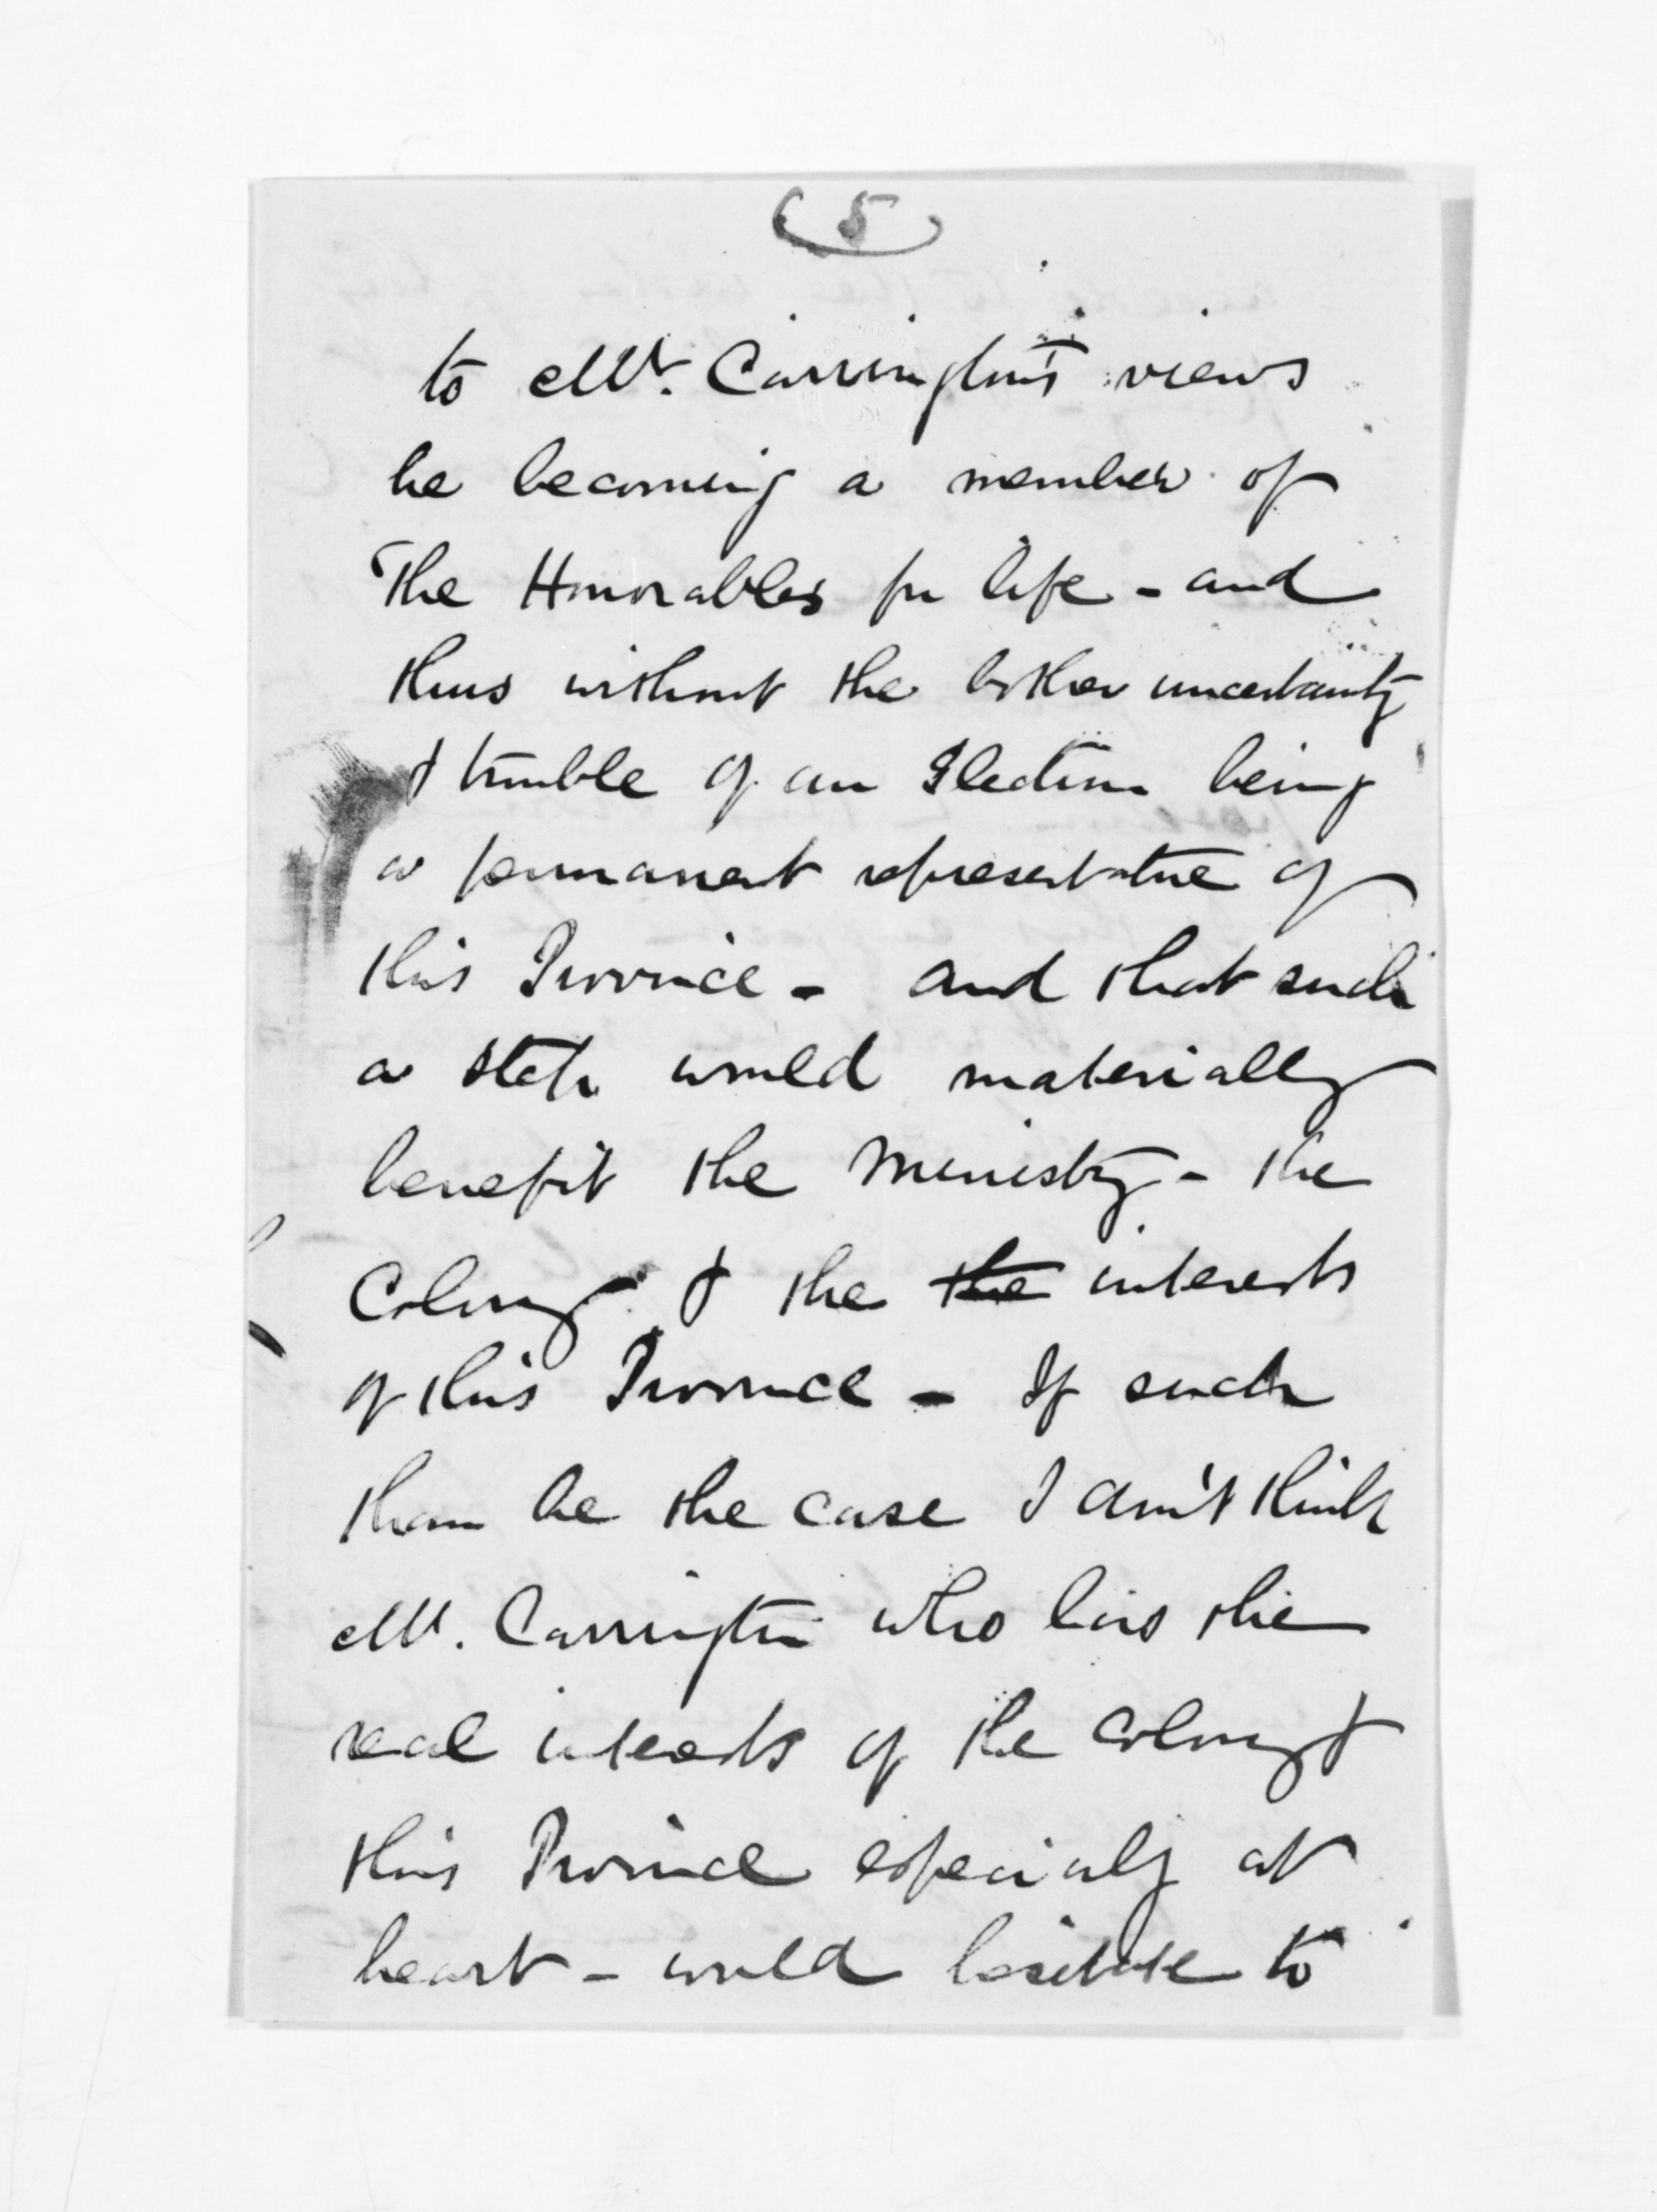 (5)
to Mr. Carrington's views
he becoming a member of
"The Honorables for life - and
thus without the bother uncertainty
& trouble of an Election being
a permanent representative of
this Province - and that such
a step would materially
benefit the Ministry - the
Colony & the the interests
of this Province - If such
than be the case I don't think
Mr. Carrington who has the
real interests of the Colony &
this Province especialy at
heart - would hesitate to